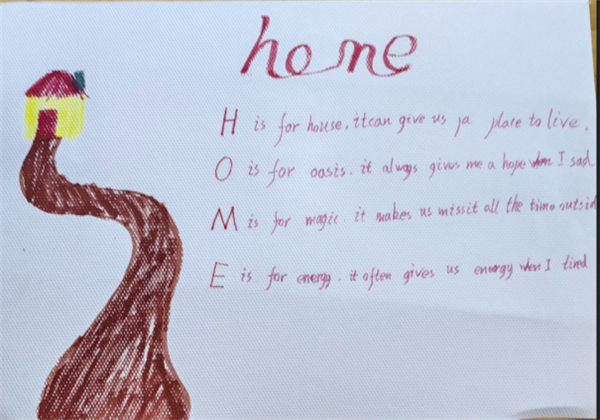 home
H is for house, it can give us a place to live.
O is for oasis. it always gives me a hope when I sad
M is for magic. it makes us miss it all the time outsid
E is for energy. it often gives us energy when I tired